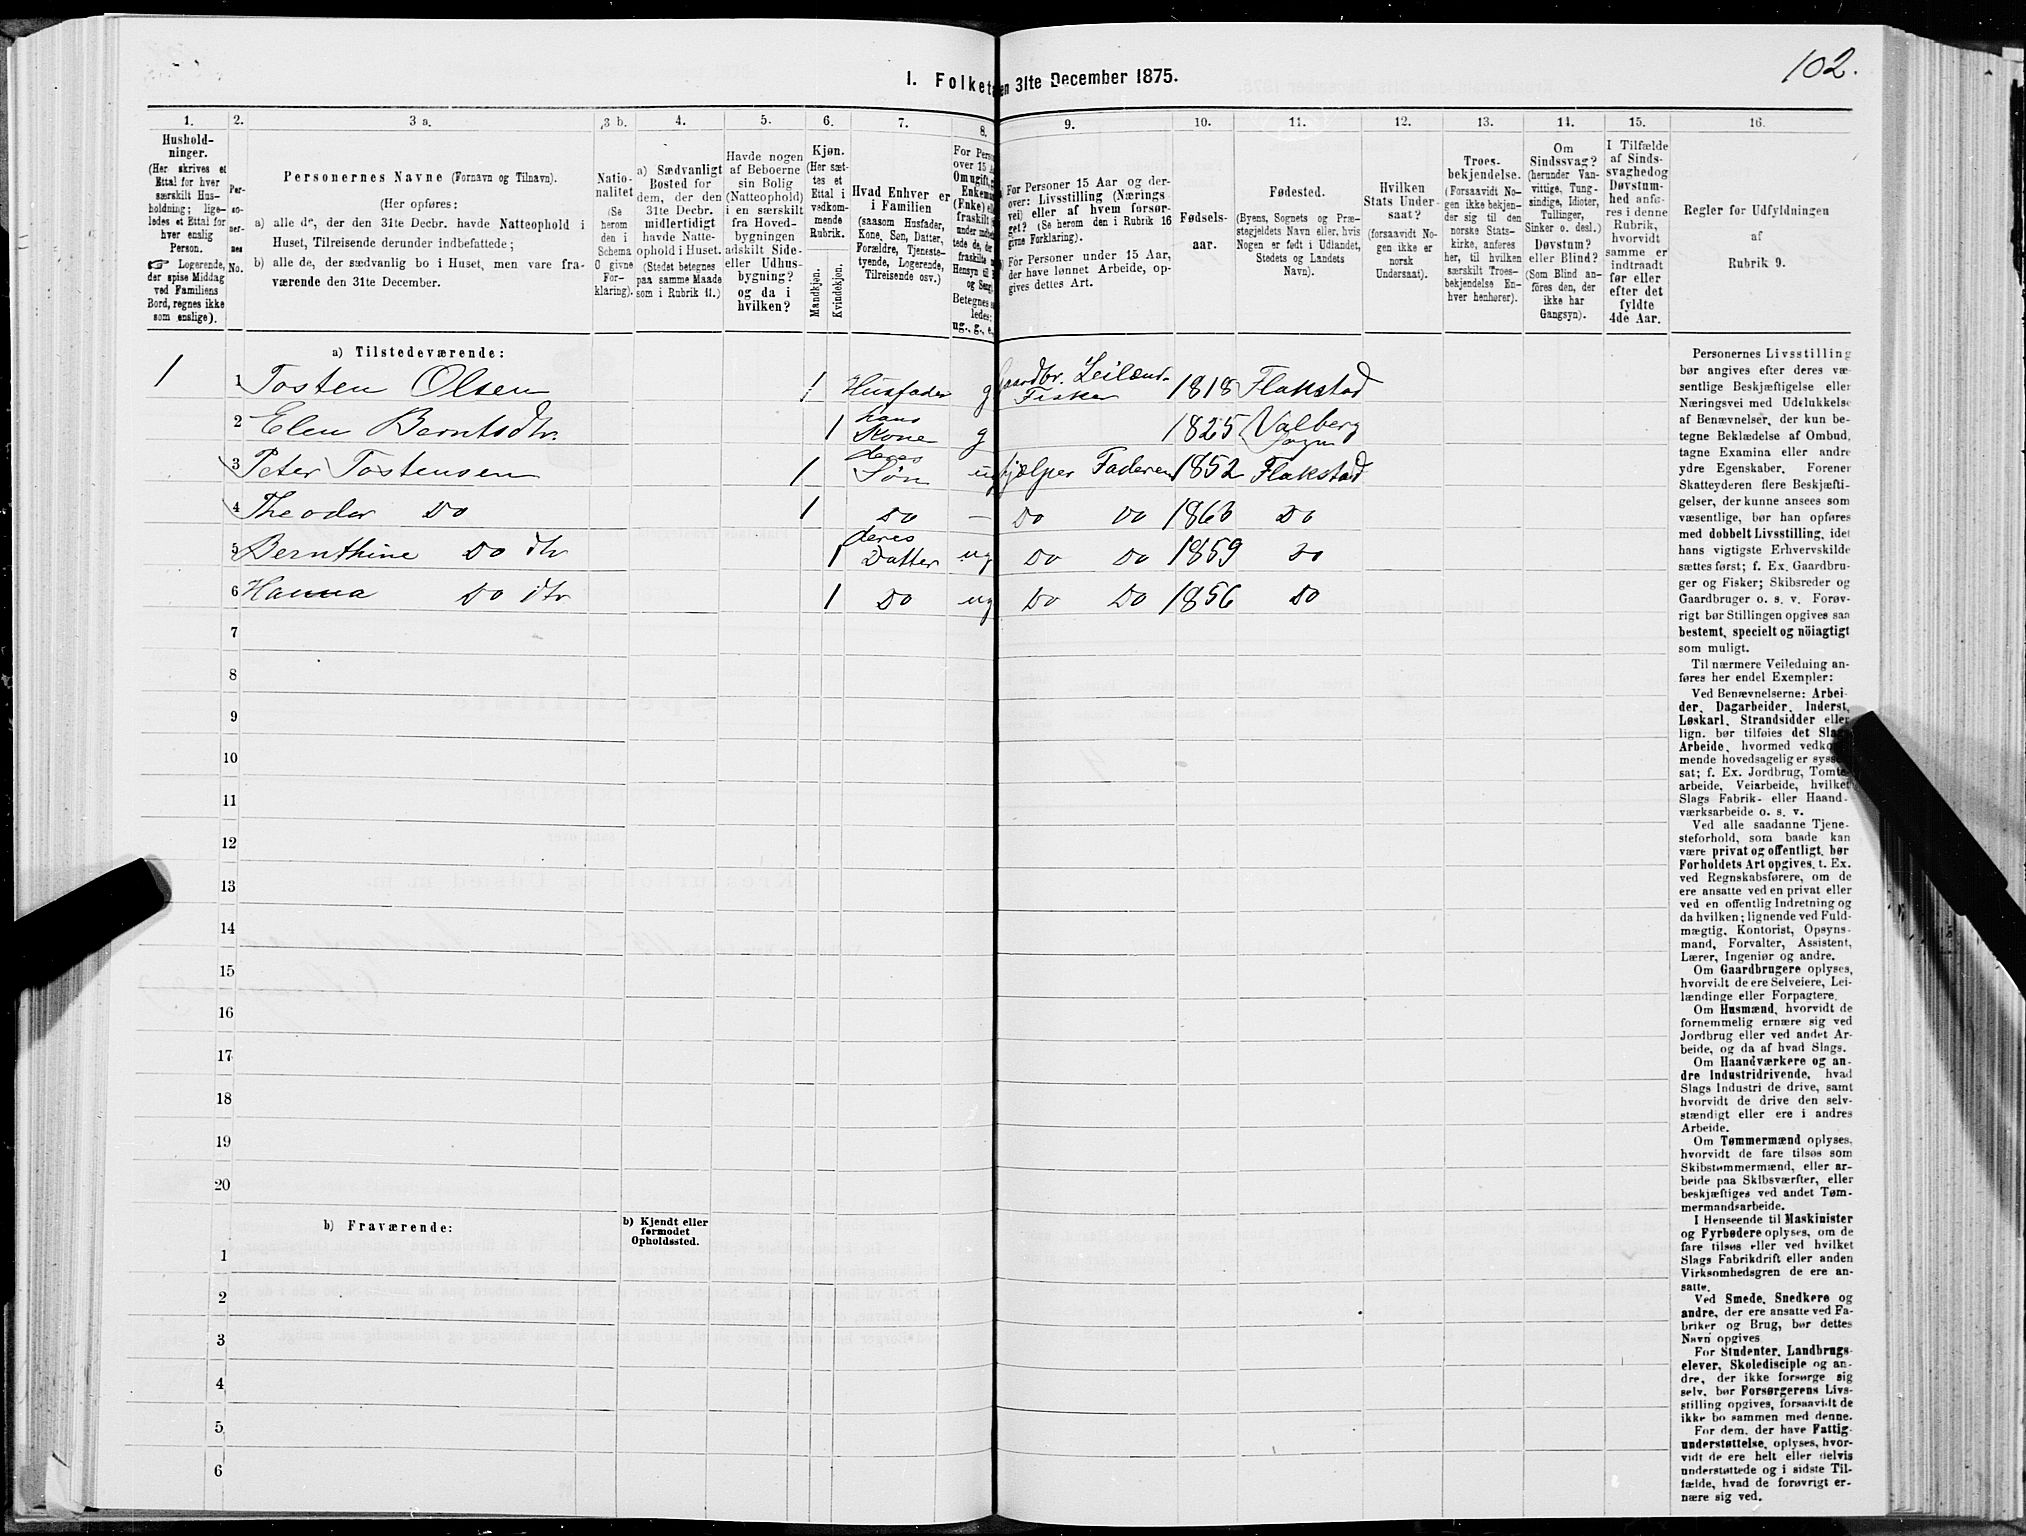 102.
I. Folket
en 31te December 1875.
1. 2. 3 a. 3 b. 4. 5. 6. 7. 8. 9. 10. 11. 12. 13. 14. 15. 16.
Hushold-
ninger.
(Her skrives et
Ettal for hver
særskilt Hus-
holdning; lige-
ledes et Ettal for
hver enslig
Person.
☞ Logerende,
der spise Middag
ved Familiens
Bord, regnes ikke
som enslige).
Per-
so-
ner-
nes
No.
Personernes Navne (Fornavn og Tilnavn).
(Her opføres:
a) alle de, der den 31te Decbr. havde Natteophold i
Huset, Tilreisende derunder indbefattede;
b) alle de, der sædvanlig bo i Huset, men vare fra-
værende den 31te December.
Natio-
nalitet
(Se
herom
den i
Schema
O givne
For-
klaring).
a) Sædvanligt
Bosted for
dem, der den
31te Decbr.
midlertidigt
havde Natte-
ophold i Huset.
(Stedet betegnes
paa samme Maade
som i Rubrik 11.)
Havde nogen
af Beboerne
sin Bolig
(Natteophold)
i en særskilt
fra Hoved-
bygningen
adskilt Side-
eller Udhus-
bygning?
og da i
hvilken?
Kjøn.
(Her sæt-
tes et
Ettal i
vedkom-
mende
Rubrik.
Mandkjøn.
Kvindekjøn.
Hvad Enhver er
i Familien
(saasom Husfader,
Kone, Søn, Datter,
Forældre, Tjeneste-
tyende, Logerende,
Tilreisende osv.)
For Pers
over 15 A
Omugift,
Enkem
(Enke) el
fraskilt
under indbe
tede de, de
fraskilte
Hensyn til
og Seng
Betegnes s
ledes:
ug., g., e.,
For Personer 15 Aar og der-
over: Livsstilling (Nærings
vei) eller af hvem forsør-
get? (Se herom den i Rubrik 16
givne Forklaring).
For Personer under 15 Aar,
der have lønnet Arbeide, op-
gives dettes Art.
Fødsels-
aar.
Fødested.
(Byens, Sognets og Præ-
stegjeldets Navn eller, hvis
Nogen er født i Udlandet,
Stedets og Landets
Navn).
Hvilken
Stats Under-
saat?
(forsaavidt No-
gen ikke er
norsk
Undersaat).
Troes-
bekjendelse.
(Forsaavidt No-
gen ikke bekjen-
der sig til den
norske Stats-
kirke, anføres
her, til hvilken
særskilt Troes-
bekjendelse En-
hver henhører).
Om
Sindssvag?
(herunder Van-
vittige, Tung-
sindige, Idioter,
Tullinger,
Sinker o. desl.)
Døvstum?
eller Blind?
(Som Blind an-
føres den, der
ikke har
Gangsyn).
I Tilfælde
af Sinds-
svaghed og
Døvstum-
hed anfø-
res i denne
Rubrik,
hvorvidt
samme er
indtraadt
før eller
efter det
fyldte
4de Aar.
Regler for Udfyldningen
af
Rubrik 9.
a) Tilstedeværende:
1 1 Tosten Olsen 1 Husfader g Gaardbr. Leilænd. Fisker 1818 Flakstad
2 Elen Berntsdtr. 1 hans Kone g 1825 Valberg Sogn
3 Peter Tostensen 1 deres Søn ug hjælper Faderen 1852 Flakstad
4 Theodor Do 1 Do — Do Do 1863 Do
5 Bernthine Do dtr 1 deres Datter ug Do Do 1859 Do
6 Hanna Do dtr 1 Do ug Do Do 1856 Do
7
8
9
10
11
12
13
14
15
16
17
18
19
20
b) Fraværende:
b) Kjendt eller
formodet
Opholdssted.
1
2
3
4
5
6
Personernes Livsstilling
bør angives efter deres væ-
sentlige Beskjæftigelse eller
Næringsvei med Udelukkelse
af Benævnelser, der kun be-
tegne Beklædelse af Ombud,
tagne Examina eller andre
ydre Egenskaber. Forener
Skatteyderen flere Beskjæfti-
gelser, der kunne ansees som
væsentlige, bør han opføres
med dobbelt Livsstilling, idet
hans vigtigste Erhvervskilde
sættes først; f. Ex. Gaardbru-
ger og Fisker; Skibsreder og
Gaardbruger o. s. v. Forøv-
rigt bør Stillingen opgives saa
bestemt, specielt og nöiagtigt
som muligt.
Til nærmere Veiledning an-
føres her endel Exempler:
Ved Benævnelserne: Arbei-
der, Dagarbeider, Inderst,
Løskarl, Strandsidder eller
lign. bør tilføies det Slags
Arbeide, hvormed vedkom-
mende hovedsagelig er syssel-
sat; f. Ex. Jordbrug, Tomte-
arbeide, Veiarbeide, hvilket
Slags Fabrik- eller Haand-
værksarbeide o. s. v.
Ved alle saadanne Tjene-
steforhold, som baade kan
være privat og offentligt, bør
Forholdets Art opgives, t. Ex.
ved Regnskabsførere, om de
ere ansatte ved en privat eller
ved en offentlig Indretning og
da hvilken; lignende ved Fuld-
mægtig, Kontorist, Opsyns-
mand, Forvalter, Assistent,
Lærer, Ingeniør og andre.
Om Gaardbrugere oplyses,
hvorvidt de ere Selveiere, Lei-
lændinge eller Forpagtere.
Om Husmænd, hvorvidt de
fornemmelig ernære sig ved
Jordbrug eller ved andet Ar-
beide, og da af hvad Slags.
Om Haandværkere og an-
dre Industridrivende, hvad
Slags Industri de drive, samt
hvorvidt de drive den selv-
stændigt eller ere i andres
Arbeide.
Om Tømmermænd oplyses,
hvorvidt de fare tilsøs som
Skibstømmermænd, eller ar-
beide paa Skibsværfter, eller
beskjæftiges ved andet Tøm-
mermandsarbeide.
I Henseende til Maskinister
og Fyrbødere oplyses, om de
fare tilsøs eller ved hvilket
Slags Fabrikdrift eller anden
Virksomhedsgren de ere an-
satte.
Ved Smede, Snedkere og
andre, der ere ansatte ved Fa-
briker og Brug, bør dettes
Navn opgives.
For Studenter, Landbrugs-
elever, Skoledisciple og an-
dre, der ikke forsørge sig
selv, bør Forsørgerens Livs-
stilling opgives, forsaavidt de
ikke bo sammen med denne.
For dem, der have Fattig-
understøttelse, oplyses, hvor-
vidt de ere helt eller delvis
understøttede og i sidste Til-
fælde, hvad de forøvrigt er-
nære sig ved.